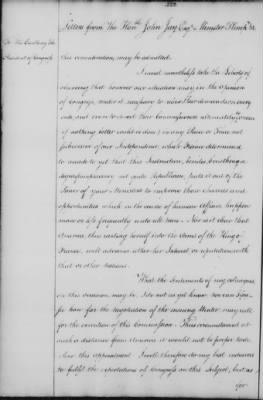 Letters from The Hon.ble John Jay Esq.r Minister Plenip.y &c
To His Excellency The
President of Congress
this consideration may be admitted.
I must nevertheless take the Liberty of
observing that however our situation may in the opinion
of Congress render it necessary to relax their demands on every
side, and even to direct their Commissioners ultimately to concur
if nothing better could be done in any Peace or Truce not
subversive of our Independence, which France determined
to accede to yet that this Instruction, besides breathing a
degree of complacency not quite republican, puts it out of the
Power of your Ministers to improve those chances and
opportunities which in the course of human affairs happen
more or less frequently unto all men. Nor is it clear that
America, thus casting herself into the Arms of the King of
France, will advance either her Interest or reputation with
that or other Nations.
What the Sentiments of my colleagues
on this occasion may be, I do not as yet know; nor can I
foresee how far the Negotiation of the ensuing Winter may call
for the execution of this Commission. Thus circumstanced at
such a distance from America it would not be proper to decline
this appointment. I will therefore do my best endeavors
to fulfil the expectations of Congress on this subject, but as
for